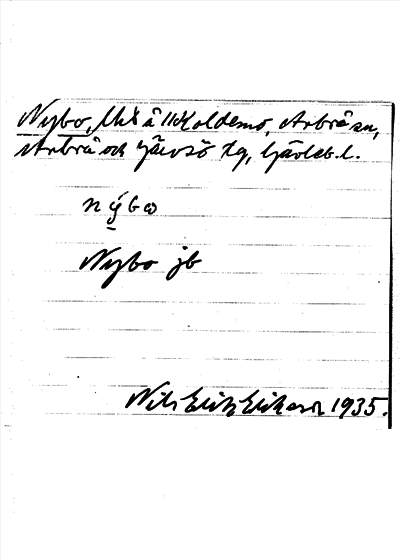 Nybo, lht å Koldemo, Arbrå sn,
Arbrå och Järvsö tg, Gävleb. l.
nýbo
Nybo jb
Nils Erik Eriksson 1935.